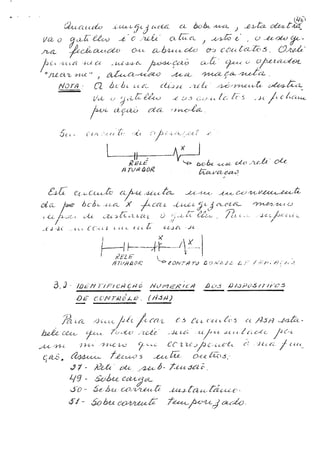 Quando energizada a bobina, esta destra-
va o gatilho e o relé atua, isto é, o energi-
za fechando ou abrindo os contatos. O relé
permanece nessa posição até que o operador
"rearme", atuando na maçaneta.
NOTA - A bobina desse relé somente destra-
va o gatilho e os contatos se fecham
por ação da mola.
Seu circuito de operação é
X
RELÉ ATUADOR
bobina do relé de
travação
Este circuito apresenta um inconveniente
da bobina X ficar energizada mesmo
depois de destravar o gatilho. Para
isso usa-se
X
RELÉ ATUADOR
CONTATO
3.2 - IDENTIFICAÇÃO NUMÉRICA DOS DISPOSITIVOS
DE CONTROLE. (ASA)
Para simplificar os circuitos a ASA esta-
beleceu que todo relé seria representado por
um número que corresponde à sua fun-
ção. Assim temos entre outros:
27 - Relé de sub-tensão.
49 - Sobrecarga
50 - Sobrecorrente instantâneo.
51 - Sobrecorrente temporizado.